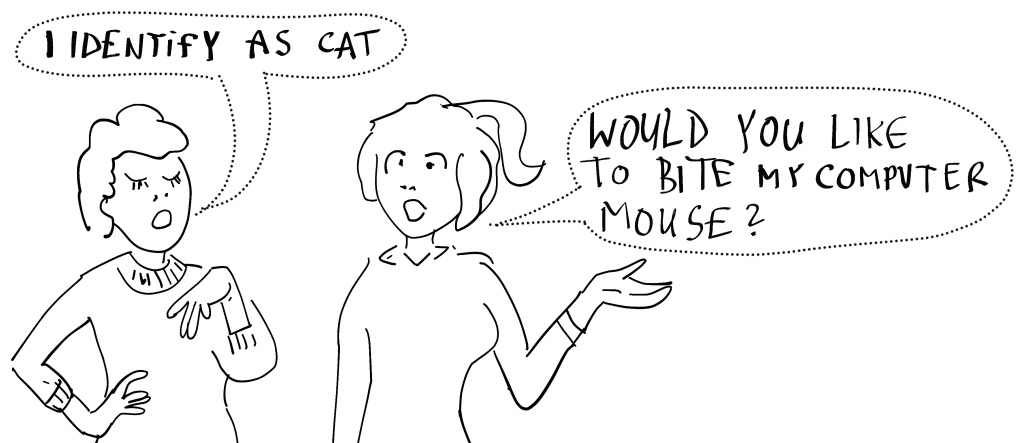 I IDENTIFY AS CAT
WOULD YOU LIKE
TO BITE MY COMPUTER
MOUSE?